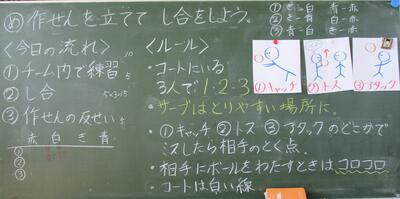 め 作せんを立てて し合をしよう。
① き-白 青-赤
② き-青 白-赤
③ 青-白 き-赤
<今日の流れ> 10
① チーム内で練習 5
② し合 5×3=15
③ 作せんの反せい
赤 白 き 青
①
②
③
<ルール>
・コートにいる
3人で1・2・3
・サーブはとりやすい場所に。
① キャッチ
② トス
③ アタック
・①キャッチ ②トス ③アタックのどこかで
ミスしたら相手のとく点。
・相手にボールをわたすときはコロコロ
・コートは白い線。